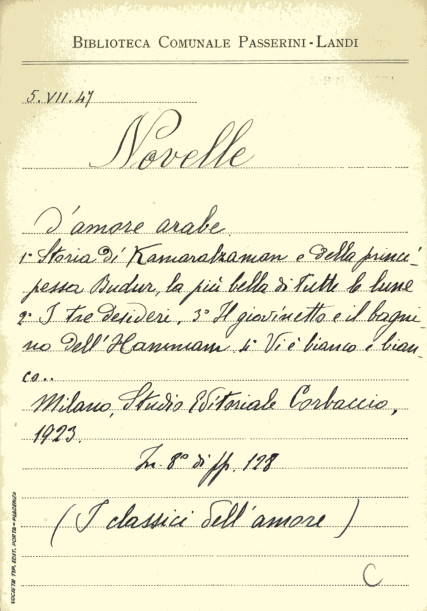 BIBLIOTECA COMUNALE PASSERINI-LANDI
5.VII.47
Novelle
d'amore arabe
1° Storia di Kamaralzaman e della princi-
pessa Budur, la più bella di tutte le lune
2° I tre desideri. 3° Il giovinetto e il bagni-
no dell'Hammam 4° Vi è bianco e bian-
co..
Milano, Studio Editoriale Corbaccio,
1923.
In 8° di pp. 128
(I classici dell'amore)
C
SOCIETÀ TIP. EDIT. PORTA - PIACENZA